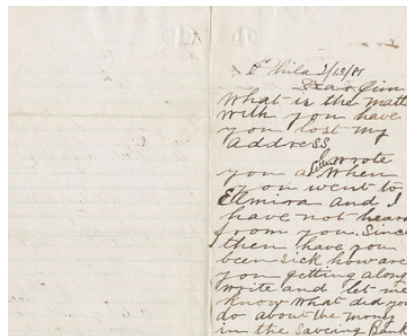 Phila 2/13/81
Dear Jim
What is the matt
with you have
you lost my
address
I wrote
you a letter when
you went to
Elmira and I
have not hear
from you. Since
then have you
been sick how are
you getting along
write and let me
know what did yo
do about the mony
in the Saveing Bank